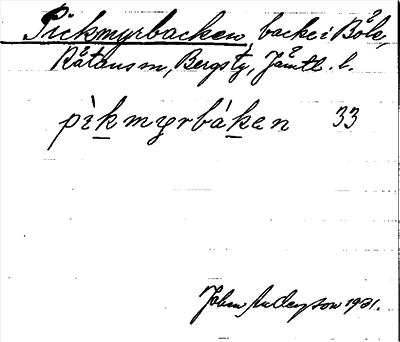 Pickmyrbacken, backe i Böle,
Rätans sn, Bergs tg, Jämtl. l.
pìkmyrbákən 33
John Anderson 1931.